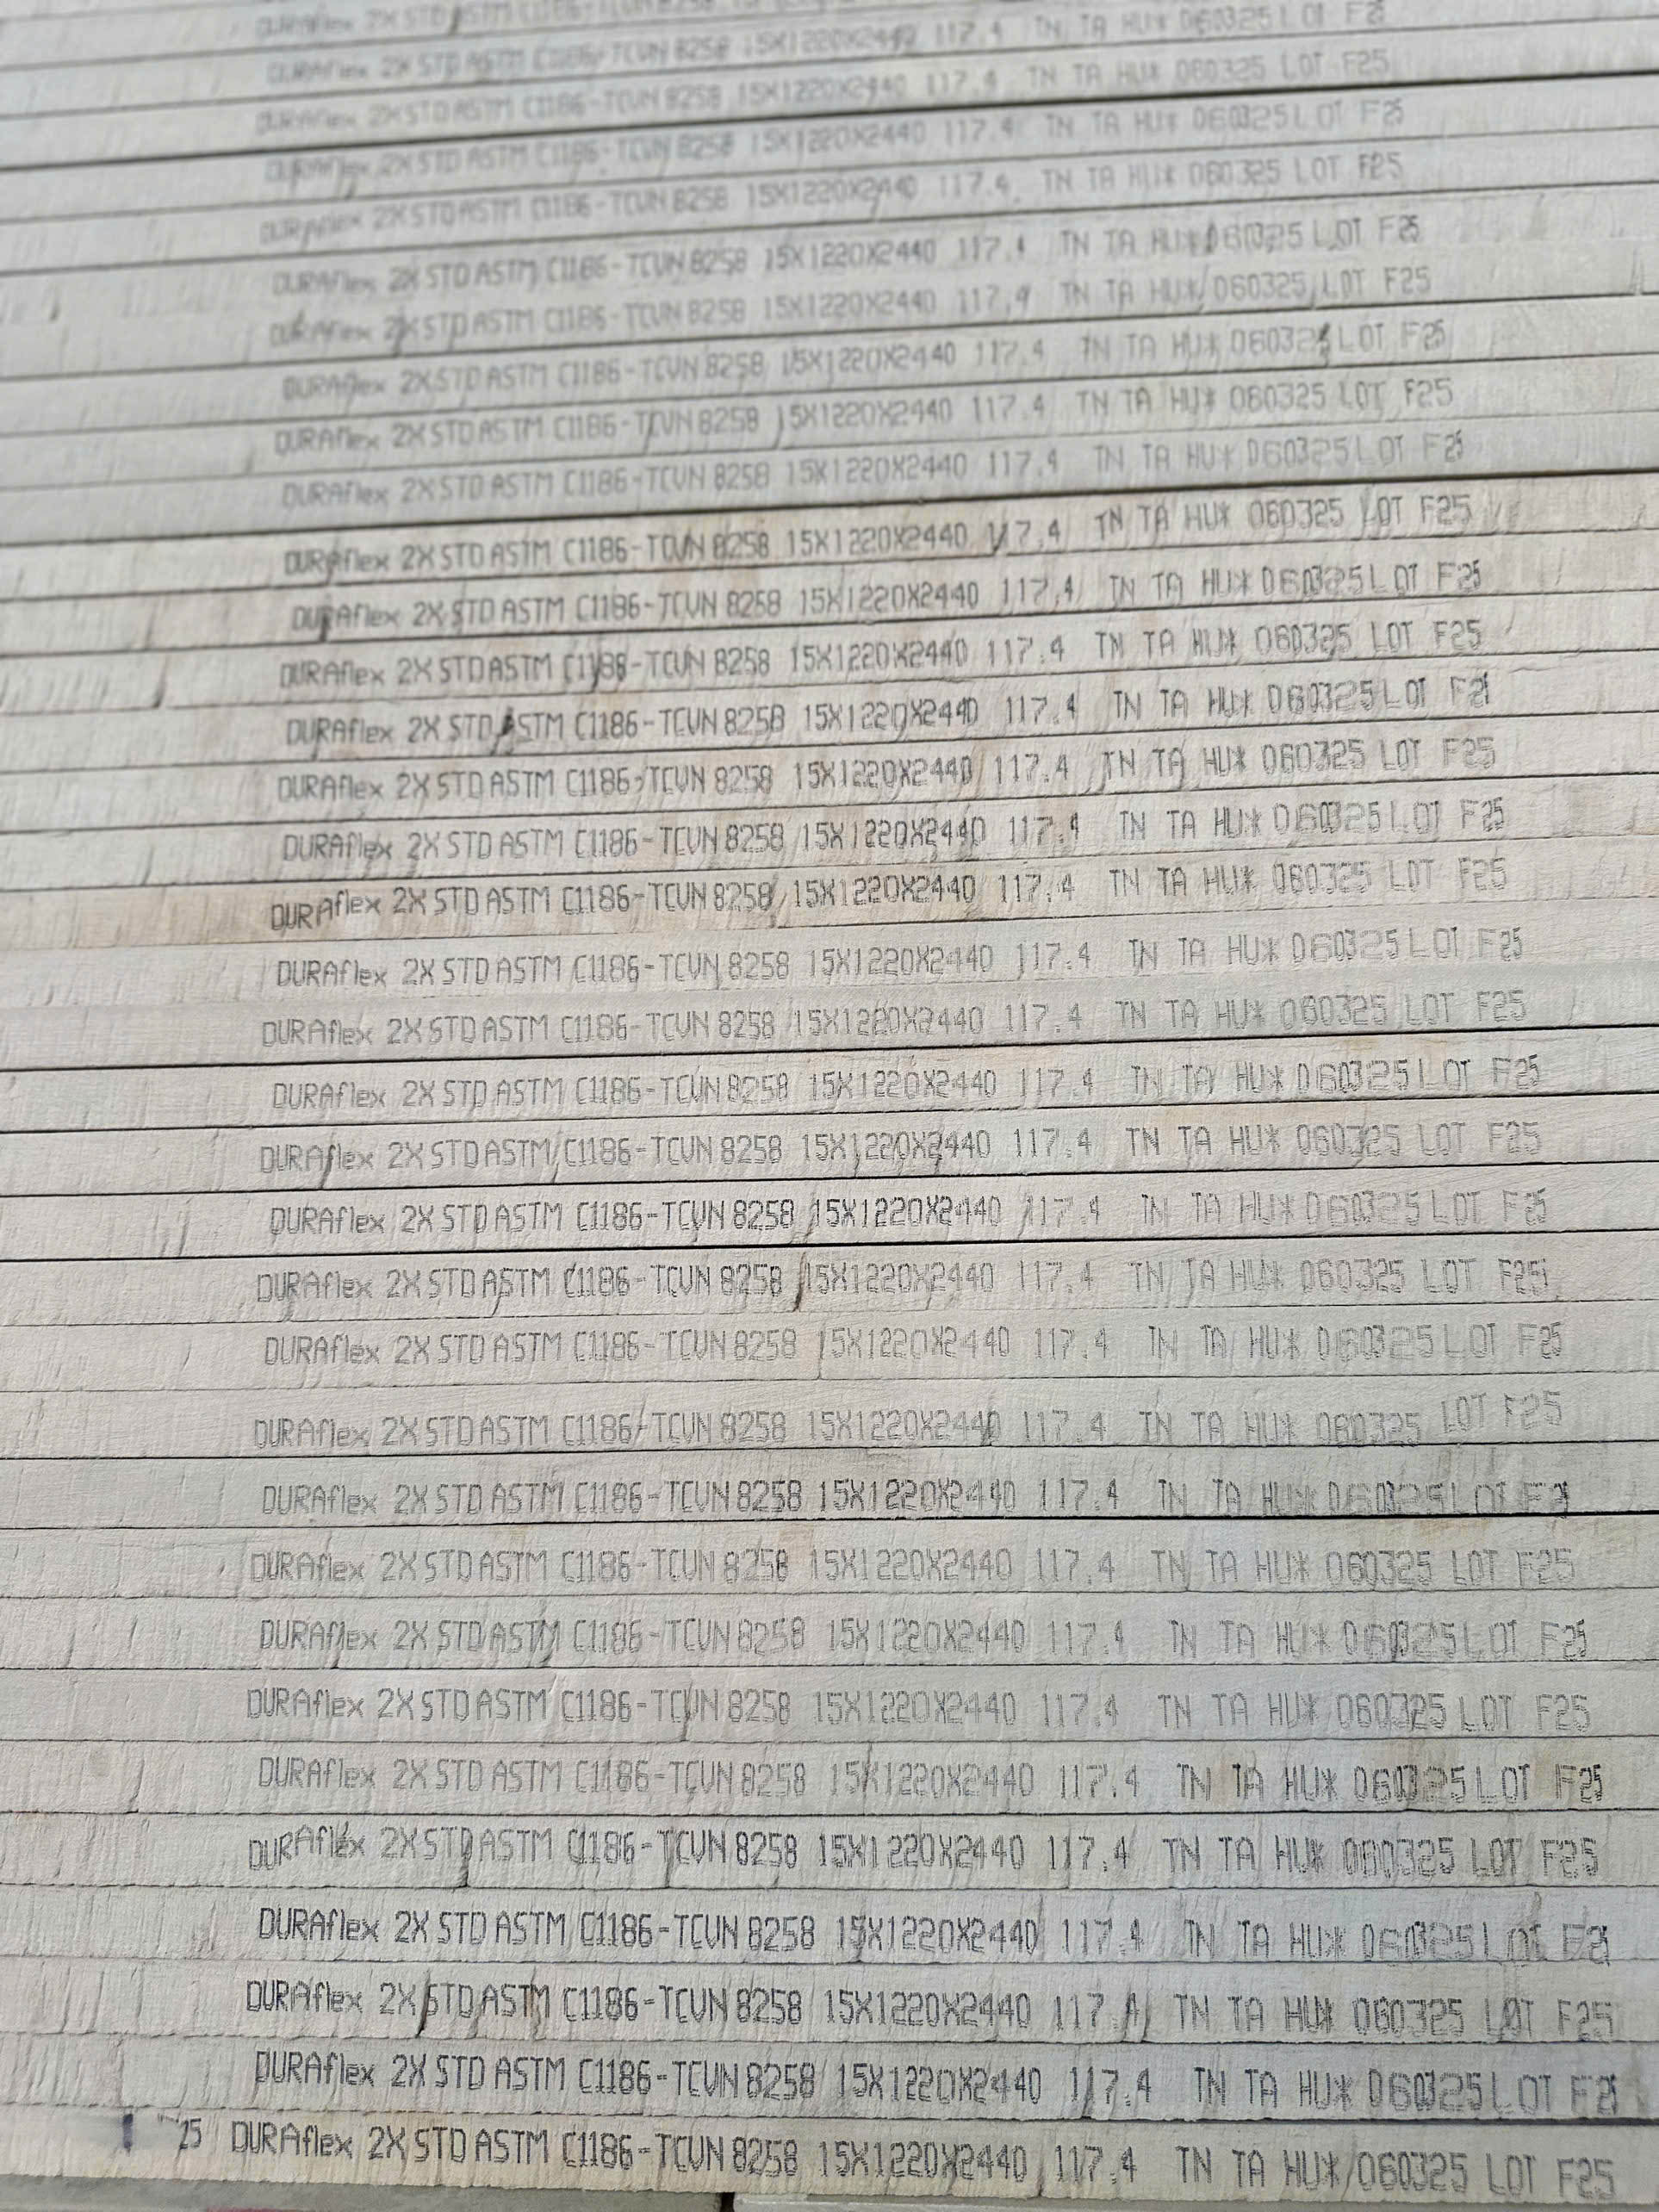 DURAflex 2X STD ASTM C1186-TCVN 8258
DURAflex 2X STD ASTM C1186-TCVN 8258 15X1220X2440 117.4 TN TA HU* 060325 LOT F25
DURAflex 2X STD ASTM C1186-TCVN 8258 15X1220X2440 117.4 TN TA HU* 060325 LOT F25
DURAflex 2X STD ASTM C1186-TCVN 8258 15X1220X2440 117.4 TN TA HU* 060325 LOT F25
DURAflex 2X STD ASTM C1186-TCVN 8258 15X1220X2440 117.4 TN TA HU* 060325 LOT F25
DURAflex 2X STD ASTM C1186-TCVN 8258 15X1220X2440 117.4 TN TA HU* 060325 LOT F25
DURAflex 2X STD ASTM C1186-TCVN 8258 15X1220X2440 117.4 TN TA HU* 060325 LOT F25
DURAflex 2X STD ASTM C1186-TCVN 8258 15X1220X2440 117.4 TN TA HU* 060325 LOT F25
DURAflex 2X STD ASTM C1186-TCVN 8258 15X1220X2440 117.4 TN TA HU* 060325 LOT F25
DURAflex 2X STD ASTM C1186-TCVN 8258 15X1220X2440 117.4 TN TA HU* 060325 LOT F25
DURAflex 2X STD ASTM C1186-TCVN 8258 15X1220X2440 117.4 TN TA HU* 060325 LOT F25
DURAflex 2X STD ASTM C1186-TCVN 8258 15X1220X2440 117.4 TN TA HU* 060325 LOT F25
DURAflex 2X STD ASTM C1186-TCVN 8258 15X1220X2440 117.4 TN TA HU* 060325 LOT F25
DURAflex 2X STD ASTM C1186-TCVN 8258 15X1220X2440 117.4 TN TA HU* 060325 LOT F25
DURAflex 2X STD ASTM C1186-TCVN 8258 15X1220X2440 117.4 TN TA HU* 060325 LOT F25
DURAflex 2X STD ASTM C1186-TCVN 8258 15X1220X2440 117.4 TN TA HU* 060325 LOT F25
DURAflex 2X STD ASTM C1186-TCVN 8258 15X1220X2440 117.4 TN TA HU* 060325 LOT F25
DURAflex 2X STD ASTM C1186-TCVN 8258 15X1220X2440 117.4 TN TA HU* 060325 LOT F25
DURAflex 2X STD ASTM C1186-TCVN 8258 15X1220X2440 117.4 TN TA HU* 060325 LOT F25
DURAflex 2X STD ASTM C1186-TCVN 8258 15X1220X2440 117.4 TN TA HU* 060325 LOT F25
DURAflex 2X STD ASTM C1186-TCVN 8258 15X1220X2440 117.4 TN TA HU* 060325 LOT F25
DURAflex 2X STD ASTM C1186-TCVN 8258 15X1220X2440 117.4 TN TA HU* 060325 LOT F25
DURAflex 2X STD ASTM C1186-TCVN 8258 15X1220X2440 117.4 TN TA HU* 060325 LOT F25
DURAflex 2X STD ASTM C1186-TCVN 8258 15X1220X2440 117.4 TN TA HU* 060325 LOT F25
DURAflex 2X STD ASTM C1186-TCVN 8258 15X1220X2440 117.4 TN TA HU* 060325 LOT F25
DURAflex 2X STD ASTM C1186-TCVN 8258 15X1220X2440 117.4 TN TA HU* 060325 LOT F25
DURAflex 2X STD ASTM C1186-TCVN 8258 15X1220X2440 117.4 TN TA HU* 060325 LOT F25
DURAflex 2X STD ASTM C1186-TCVN 8258 15X1220X2440 117.4 TN TA HU* 060325 LOT F25
DURAflex 2X STD ASTM C1186-TCVN 8258 15X1220X2440 117.4 TN TA HU* 060325 LOT F25
DURAflex 2X STD ASTM C1186-TCVN 8258 15X1220X2440 117.4 TN TA HU* 060325 LOT F25
DURAflex 2X STD ASTM C1186-TCVN 8258 15X1220X2440 117.4 TN TA HU* 060325 LOT F25
DURAflex 2X STD ASTM C1186-TCVN 8258 15X1220X2440 117.4 TN TA HU* 060325 LOT F25
DURAflex 2X STD ASTM C1186-TCVN 8258 15X1220X2440 117.4 TN TA HU* 060325 LOT F25
DURAflex 2X STD ASTM C1186-TCVN 8258 15X1220X2440 117.4 TN TA HU* 060325 LOT F25
25 DURAflex 2X STD ASTM C1186-TCVN 8258 15X1220X2440 117.4 TN TA HU* 060325 LOT F25